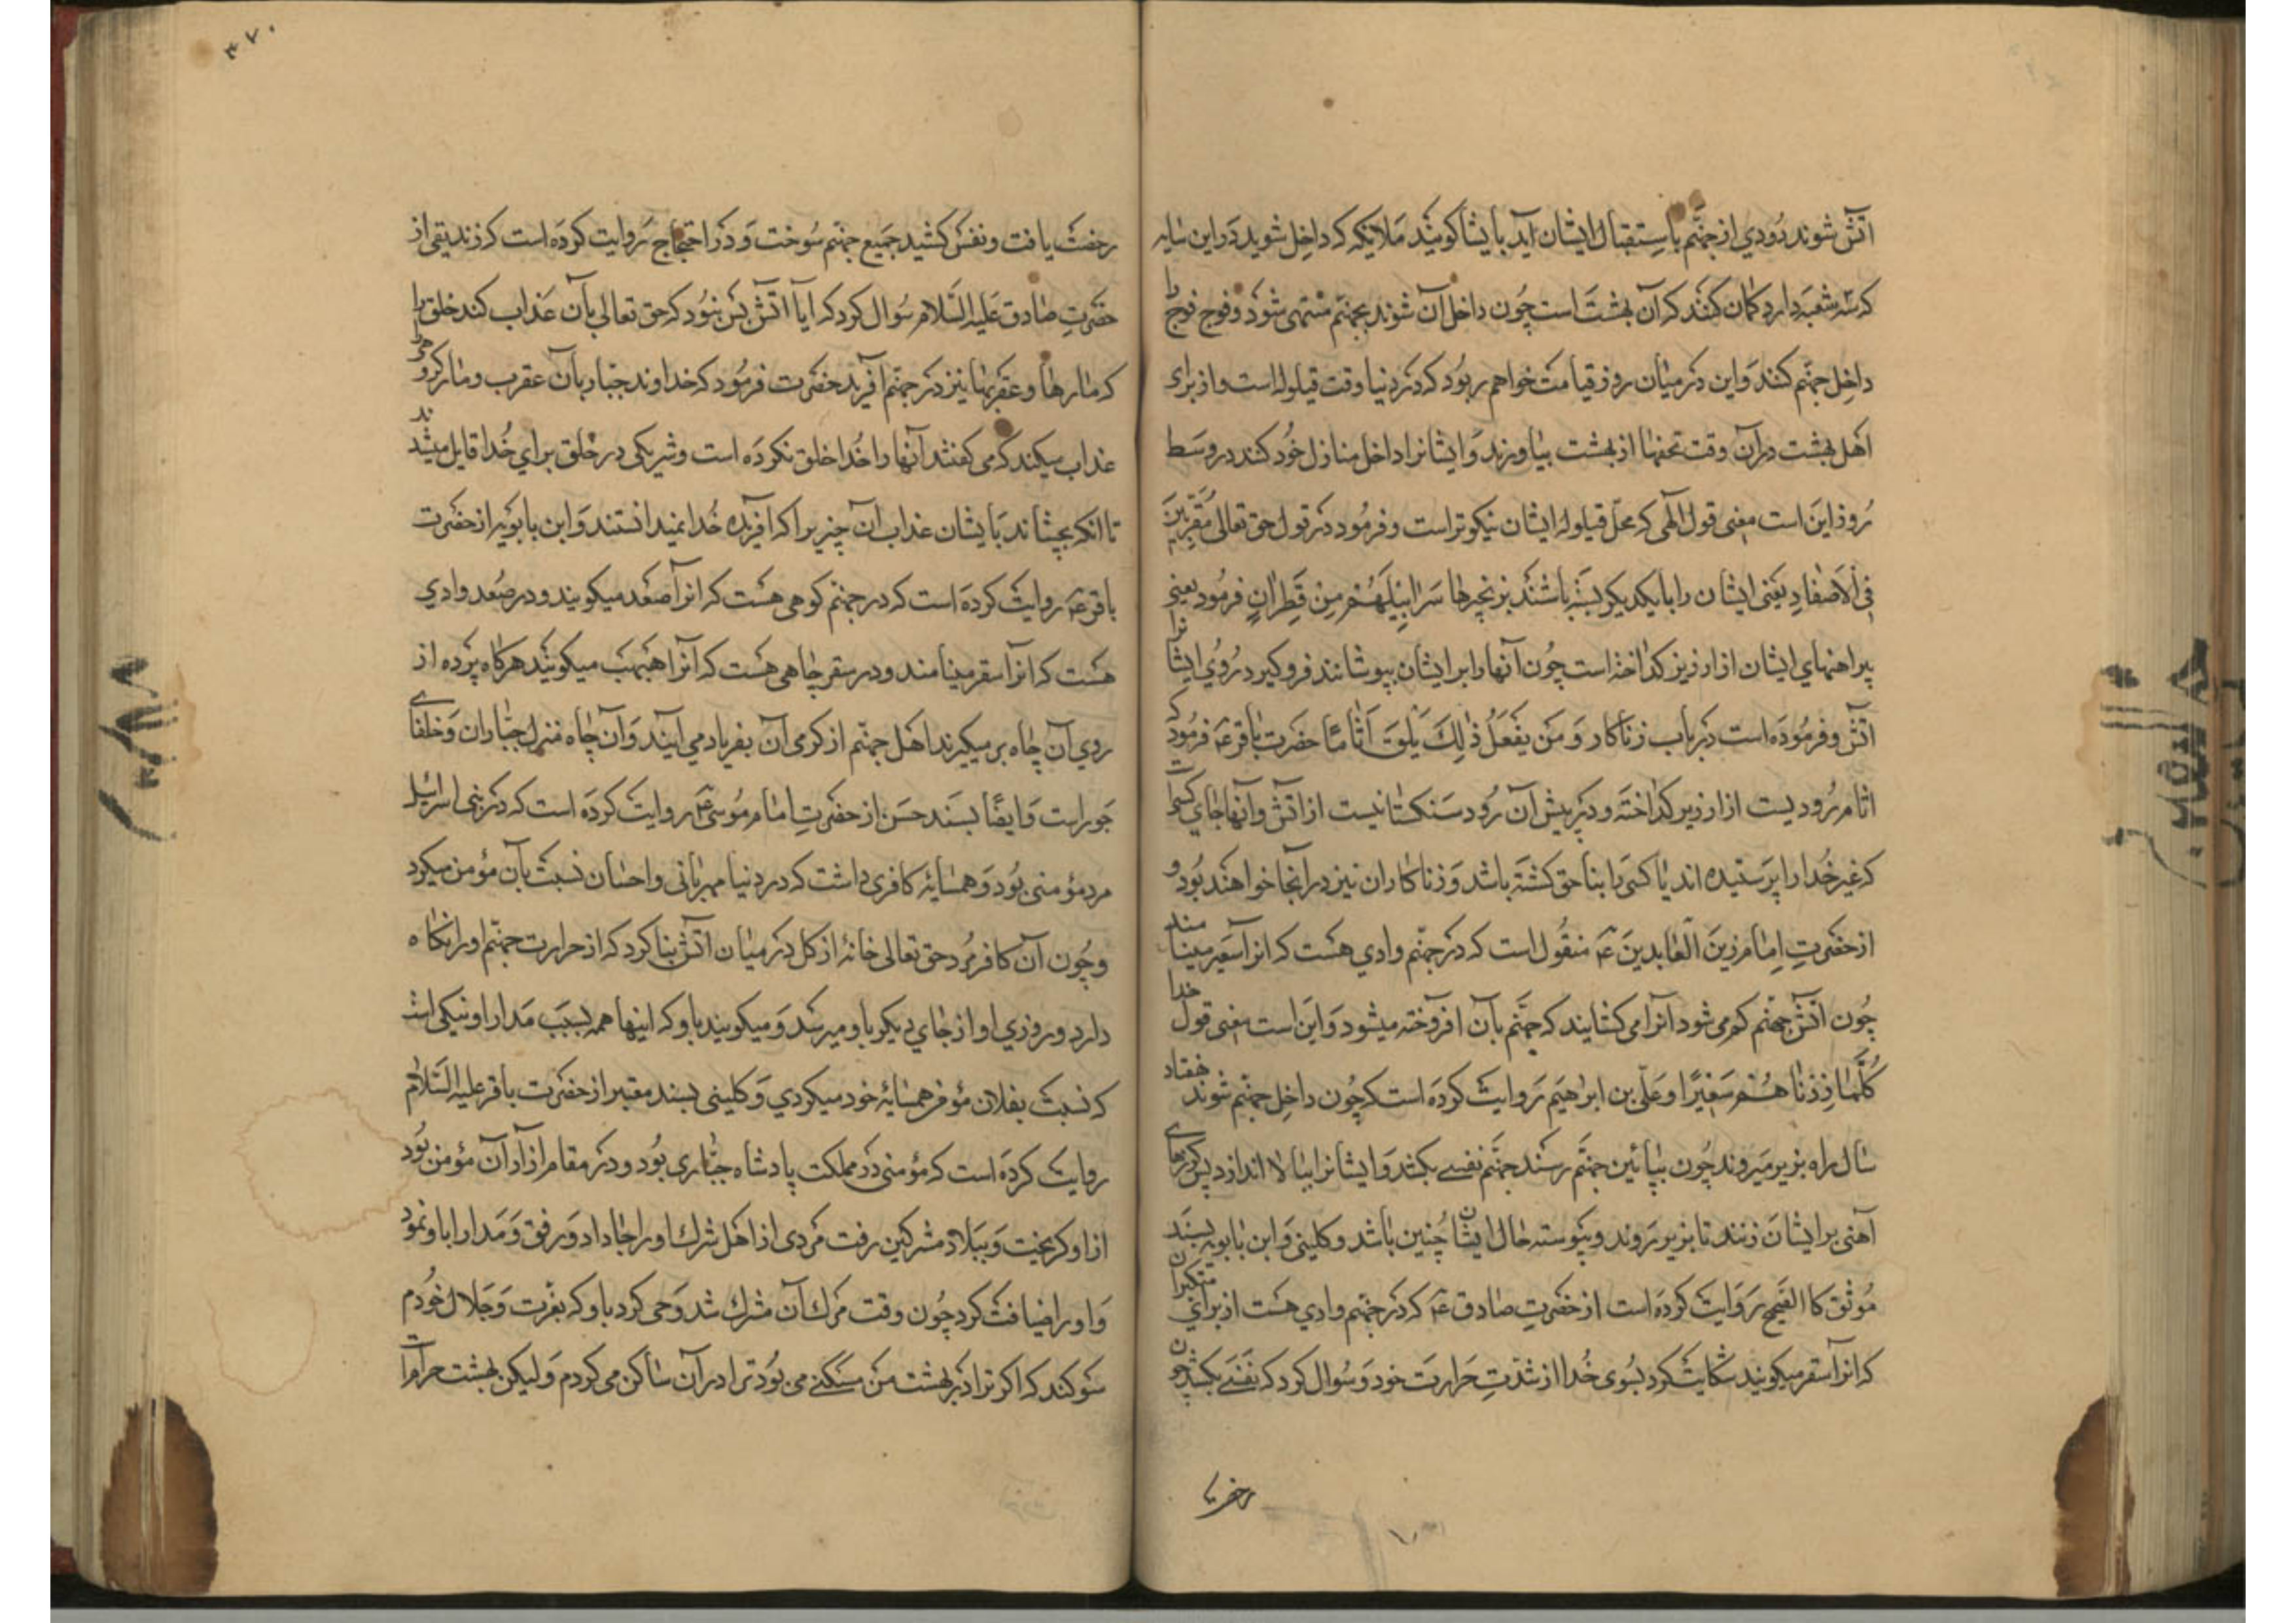 آتش شوند دودي از جهنّم باستقبال ایشان آید با یشا کویند ملائکه که داخل شوید در این سایه
که سه شعبه دارد کمان کنند که آن بهشت است چون داخل آن شوند بجهنم منتهی شود و فوج فوج را
داخل جهنم کنند و این در میان روز قیامت خواهد بود که در دنیا وقت قیلوله است و از برای
اهل بهشت در آن وقت تحفها از بهشت بیاورند و ایشانرا داخل منازل خود کنند در وسط
روز این است معنی قول الهی که محل قیلوله ایشان نیکوتر است و فرمود در قول حق تعالی مقرنین
فی الاصفاد یعنی ایشان را بایکدیکر بسته باشند بزنجیرها سرابیلهم من قطران فرمود یعنی
پیراهنهاي ایشان از ارزیز کداخته است چون آنها را بر ایشان بپوشانند فرو کیرد روي ایشانرا
آتش و فرموده است در باب زناکار و من یفعل ذلك یلق اثاما حضرت باقر ع فرمود که
اثام رودیست از ارزیر کداخته و در پیش آن رود سنکستانیست از آتش و آنها جاي کسیست
که غیر خدا را پرستیده اند یا کسی را بناحق کشته باشد و زناکاران نیز در آنجا خواهند بود و
از حضرت امام زین العابدین ع منقول است که در جهنم وادي هست که انرا سعیر مینامند
چون آتش جهنم کم می شود آنرا می کشایند که جهنم بآن افروخته میشود و این است معنی قول خدا
کلّما زدنا هم سعیرا و علّی بن ابراهیم روایت کرده است که چون داخل جهنم شوند هفتاد
سال راه بزیر میروند چون بپائین جهنم رسند جهنم نفسے بکشد و ایشانرا ببالا اندازد پس کرزهاے
آهنی بر ایشان زنند تا بزیر روند و پیوسته حال ایشان چنین باشد و کلینی و ابن بابویه بسند
موثق کالصحیح روایت کرده است از حضرت صادق ع که در جهنم وادي هست از براي متکبران
که انرا سقر میکویند شکایت کرد بسوی خدا از شدّت حرارت خود و سوال کرد که نفسے بکشد چون
رخصت یا
۳۷۰
رخصت یافت و نفس کشید جمیع جهنم سوخت و در احتجاج روایت کرده است که زندیقی از
حضرت صادق علیه السّلام سوال کرد که ایا آتش بس نبود که حق تعالی بآن عذاب کند خلق را
که مارها و عقربها نیز در جهنم آفرید حضرت فرمود که خداوند جبار بآن عقرب و مار کروهی را
عذاب میکند که می کفتند آنها را خدا خلق نکرده است و شریکی در خلق براي خدا قایل میشدند
تا انکه بچشاند با یشان عذاب آن چیز یرا که افریده خدا نمیدانستند و ابن بابویه از حضرت
باقر ع روایت کرده است که در جهنم کوهی هست که انرا صعد میکویند و در صعد وادي
هست که انرا سقر مینامند و در سقر چاهی هست که آنرا هبهب میکویند هر کاه پرده از
روي آن چاه بر میکیرند اهل جهنم از کرمی آن بفریاد می آیند و آن چاه منزل جبّاران و خلفاے
جور است و ایضاً بسند حسن از حضرت امام موسی ع روایت کرده است که در بنی اسرائیل
مرد مؤمنی بود و همسایۀ کافری داشت که در دنیا مهربانی و احسان نسبت بآن مؤمن میکرد
و چون آن کافر مرد حق تعالی خانۀ از کل در میان آتش بنا کرد که از حرارت جهنم اورا نکاه
دارد و روزي او از جاي دیکر باو میرسد و میکویند باو که اینها همه بسبب مدارا و نیکی است
که نسبت بفلان مؤمن همسایۀ خود میکردي و کلینی بسند معتبر از حضرت باقر علیه السّلام
روایت کرده است که مؤمنی در مملکت پادشاه جبّاری بود و در مقام آزار آن مؤمن بود
از او کریخت و ببلاد مشرکین رفت مردی از اهل شرك اورا جا داد و رفق و مدارا با او نمود
و اورا ضیافت کرد چون وقت مرك آن مشرك شد وحی کرد باو که بعزت و جلال خودم
سوکند که اکر ترا در بهشت من مسکنے می بود ترا در آن ساکن می کردم و لیکن بهشت حرامست